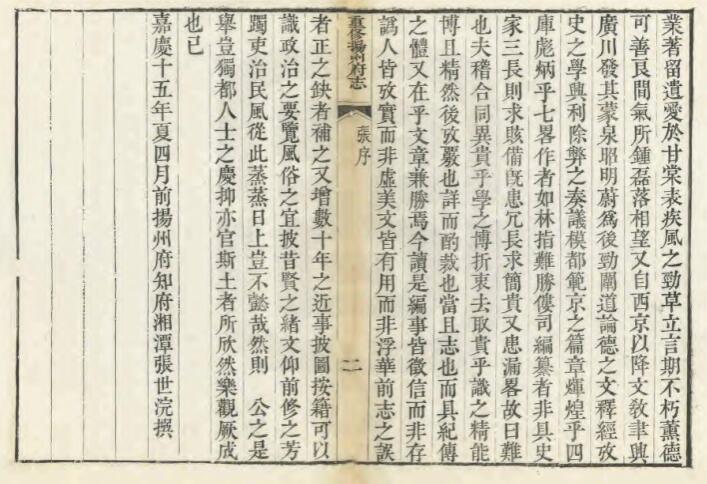 業著留遺愛於甘棠表疾風之勁草立言期不朽薰德
可善良間氣所鍾磊落相望又自西京以降文敎聿興
廣川發其蒙泉昭明蔚爲後勁闡道論德之文釋經攷
史之學興利除弊之奏議模都範京之篇章輝煌乎四
庫彪炳乎七畧作者如林指難勝僂司編纂者非具史
家三長則求賅備旣患冗長求簡貴又患漏畧故曰難
也夫稽合同異貴乎學之博折衷去取貴乎識之精能
博且精然後攷嚴也詳而酌裁也當且志也而具紀傳
之體又在乎文章兼勝焉今讀是編事皆徵信而非存
譌人皆攷實而非虛美文皆有用而非浮華前志之誤
重修揚州府志
張序
二
者正之缺者補之又增數十年之近事披圖按籍可以
識政治之要覽風俗之宜披昔賢之緒文仰前修之芳
躅吏治民風從此蒸蒸日上豈不懿哉然則 公之是
舉豈獨都人士之慶抑亦官斯土者所欣然樂觀厥成
也已
嘉慶十五年夏四月前揚州府知府湘潭張世浣撰